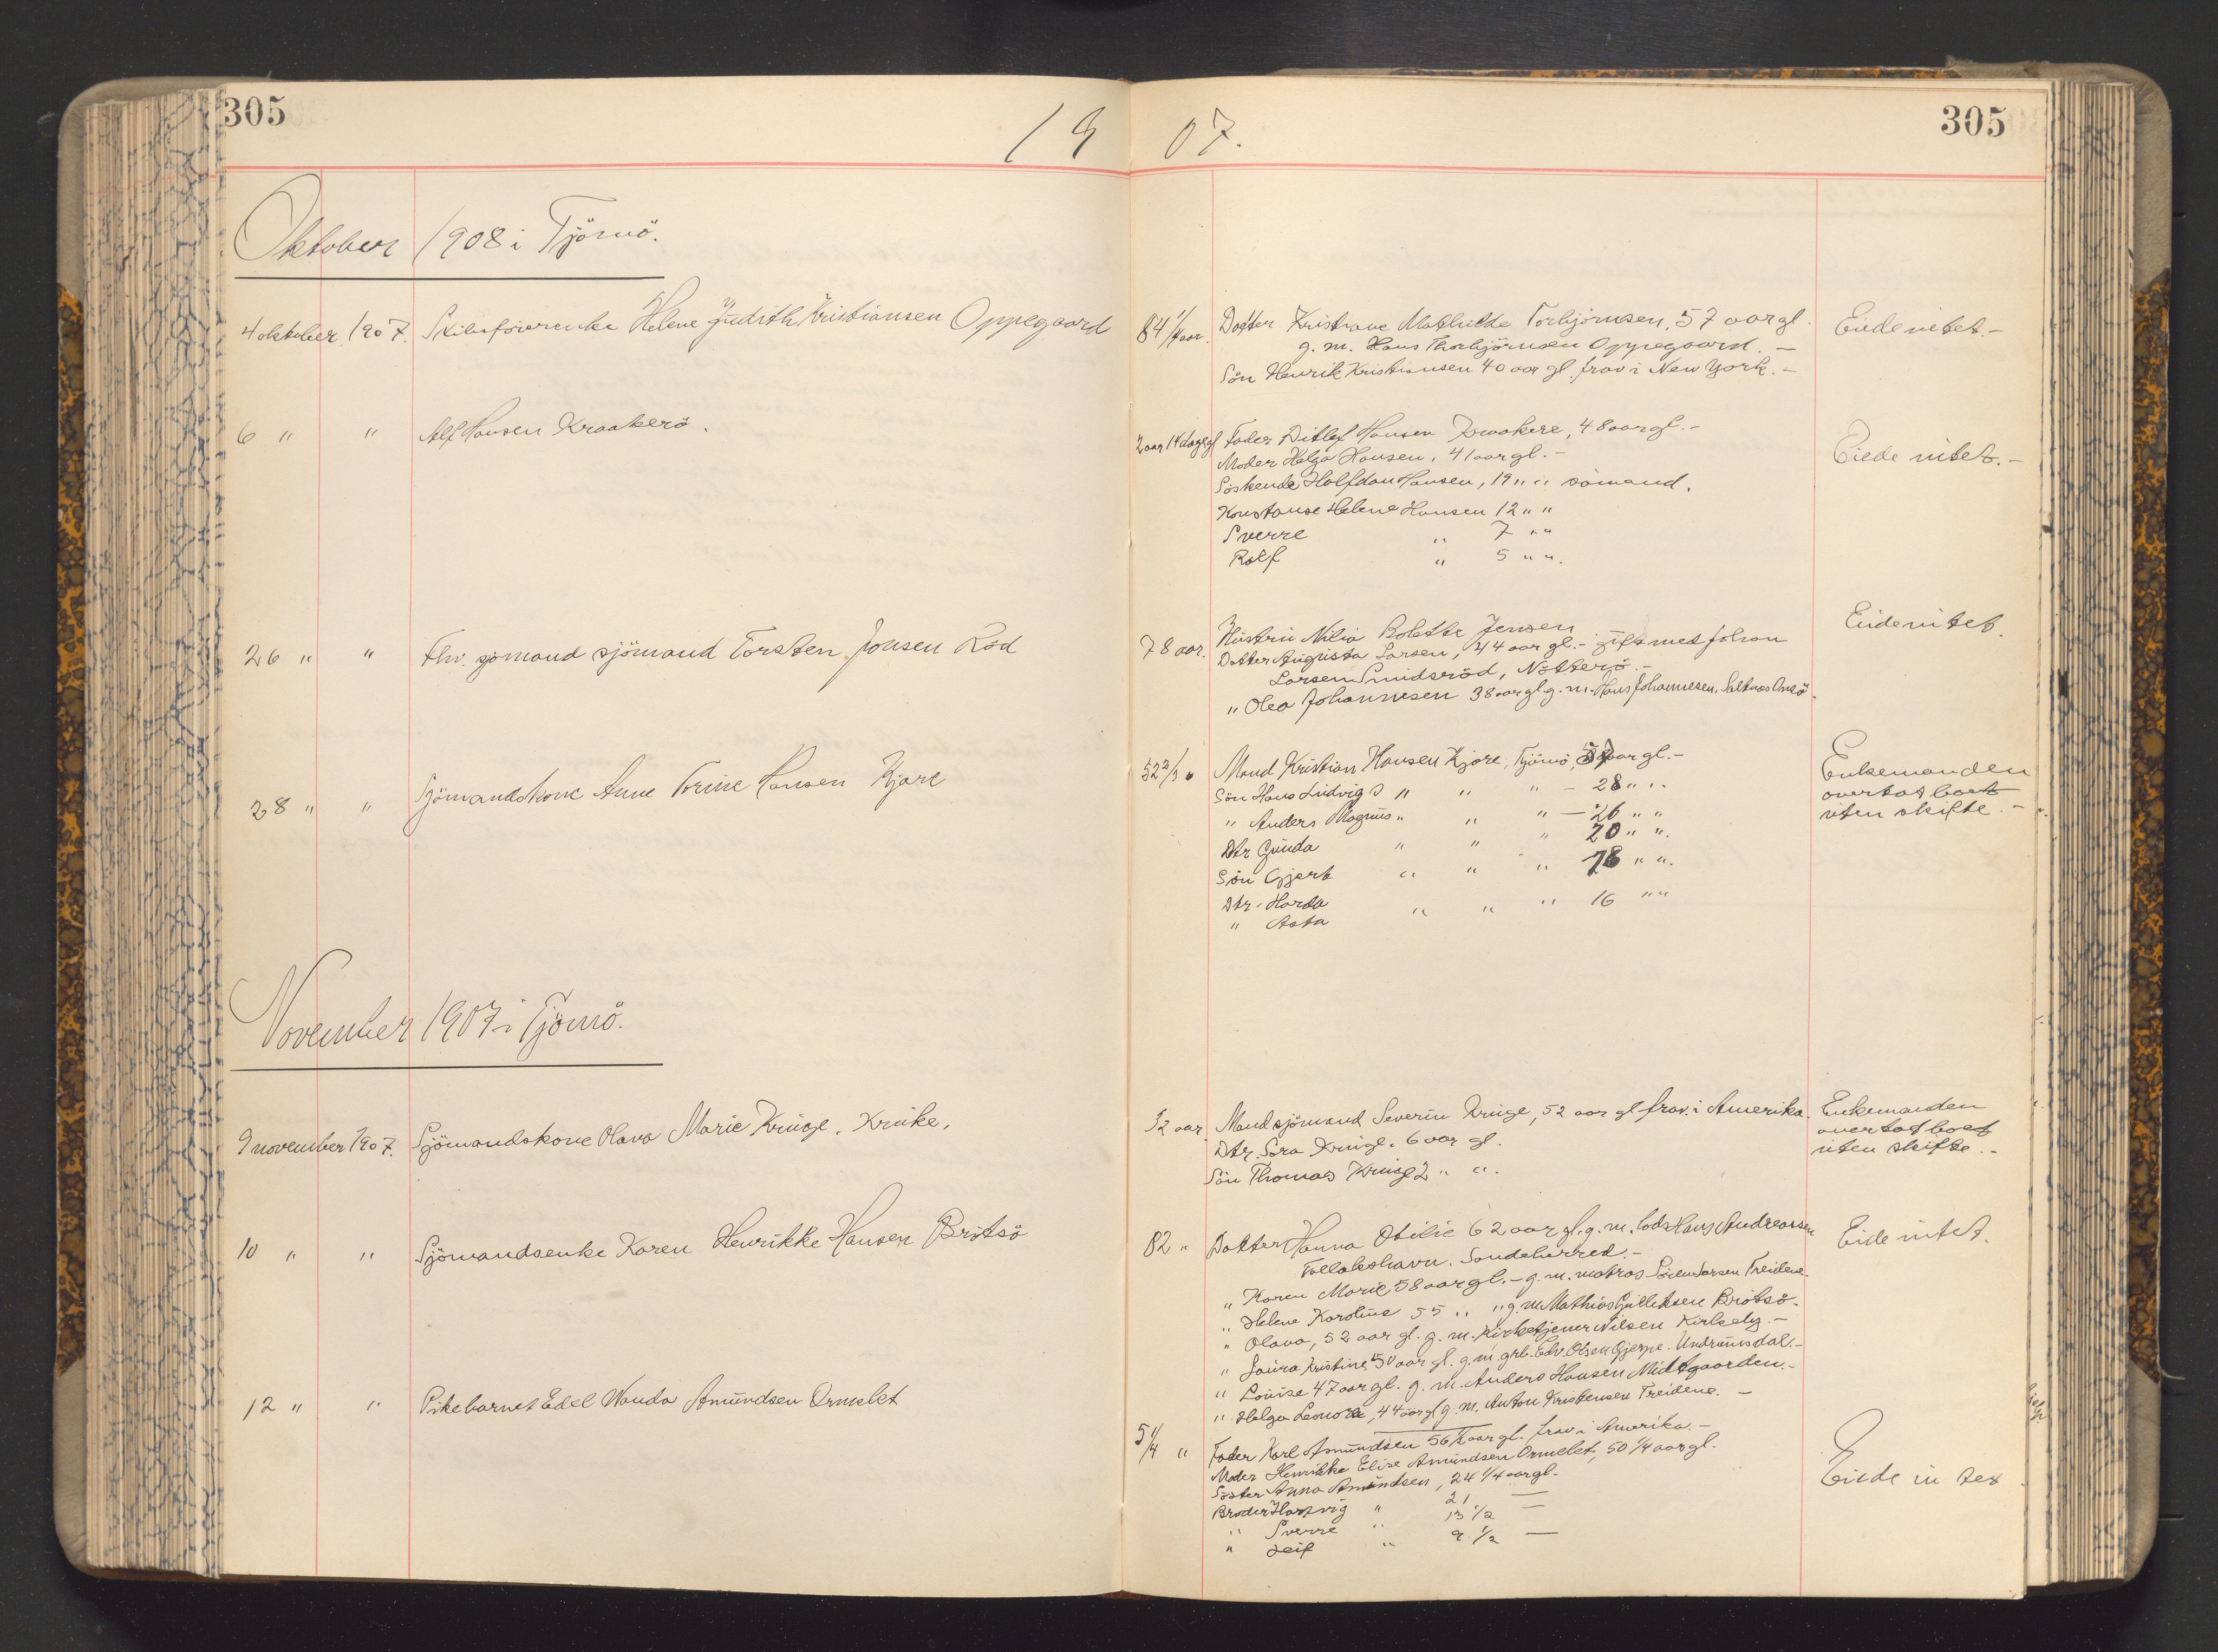 305
305
19 07.
Oktober 1908 i Tjömö.
4 oktober 1907. Skibsförerenke Helene Judith Kristiansen Oppegaard
84 1/4 aar. Datter Kristiane Mathilde Torbjörnsen, 57 aar gl.
g. m. Hans Thorbjörnsen Oppegaard. –
Sön Henrik Kristiansen 40 aar gl. frav. i New York. –
Eiede intet –
6 " " Alf Hansen Kraakerö.
2 aar 14 dage gl Fader Ditlef Hansen Kraakere, 48 aar gl. –
Moder Helga Hansen, 41 aar gl. –
Söskende Halfdan Hansen, 19 " " sömand.
Konstanse Helene Hansen 12 " "
Sverre " 7 " "
Rolf " 5 " ".
Eiede intet. –
26 " " Fhv. sjömand sjömand Torsten Jonsen Röd
78 aar. Hustru Nilia Bolette Jensen
Datter Augusta Larsen, 44 aar gl. – gift med Johan
Larsen Smidsröd, Nötterö. –
" Olea Johannesen 38 aar gl. g. m. Hans Johannesen, Saltnes Onsö.
Eide intet
28 " " Sjömandskone Anne Torine Hansen Kjære
52 2/3 " Mand Kristian Hansen Kjære, Tjömö, 57 aar gl. –
Sön Hans Ludvig " " " – 28 " "
" Anders Magnus " " " – 26 " "
Dtr Gunda " " " 20 " ".
Sön Gjert " " " 18 " ".
Dtr. Harda " " " 16 " "
" Asta
Enkemanden
overtat boet
uten skifte. –
November 1907 i Tjömö.
9 november 1907. Sjömandskone Olava Marie Kruge, Kruke.
32 aar Mand sjömand Severin Kruge, 52 aar gl frav. i Amerika.
Dtr. Sara Kruge. 6 aar gl.
Sön Thomas Kruge 2 " ".
Enkemanden
overtat boet
uten skifte. –
10 " " Sjömandsenke Karen Henrikke Hansen Brötsö
82 " Datter Hanna Otilie 62 aar gl. g. m. lods Hans Andreassen
Follakshavn. Sandeherred. –
" Karen Marie 58 aar gl. – g. m. matros Sören Larsen Treidene.
" Helene Karoline 55 " " g. m. Mathias Gulliksen Brötsö –
" Olava, 52 aar gl. g. m. Kirketjener Nilsen Kirkeby. –
" Laura Kristine 50 aar gl. g. m. grb. Edv. Olsen Gjerpe. Undrumsdal. –
" Louise 47 aar gl. g. m. Anders Hansen Midtgaarden. –
" Helga Leonore, 44 aar gl g. m. Anton Kristensen Treidene. –
Eide intet.
12 " " Pikebarnet Edel Wanda Amundsen Ormelet
5 1/4 " Fader Karl Amundsen 56 1/2 aar gl. frav. i Amerika. –
Moder Henrikke Elise Amundsen Ormelet, 50 1/4 aar gl.
Söster Anna Amundsen, 24 1/4 aar gl. –
Broder Hartvig " 21 –
" Sverre " 13 1/2
" Leif " 9 1/2 –
Eiede in tet